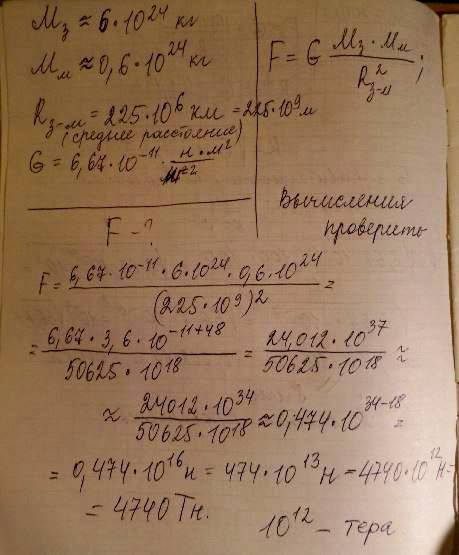 Mз ≈ 6·10²⁴ кг
Mм ≈ 0,6·10²⁴ кг
Rз-м = 225·10⁶ км = 225·10⁹ м
(среднее расстояние)
G = 6,67·10⁻¹¹ · н·м²/кг²
F - ?
F = G Mз·Mм / R²з-м ;
Вычисления
проверить
F = 6,67·10⁻¹¹·6·10²⁴·0,6·10²⁴ / (225·10⁹)² =
= 6,67·3,6·10⁻¹¹⁺⁴⁸ / 50625·10¹⁸ = 24,012·10³⁷ / 50625·10¹⁸ ≈
≈ 24012·10³⁴ / 50625·10¹⁸ ≈ 0,474·10³⁴⁻¹⁸ =
= 0,474·10¹⁶ н = 474·10¹³ н = 4740·10¹² н =
= 4740 Тн.
10¹² - тера